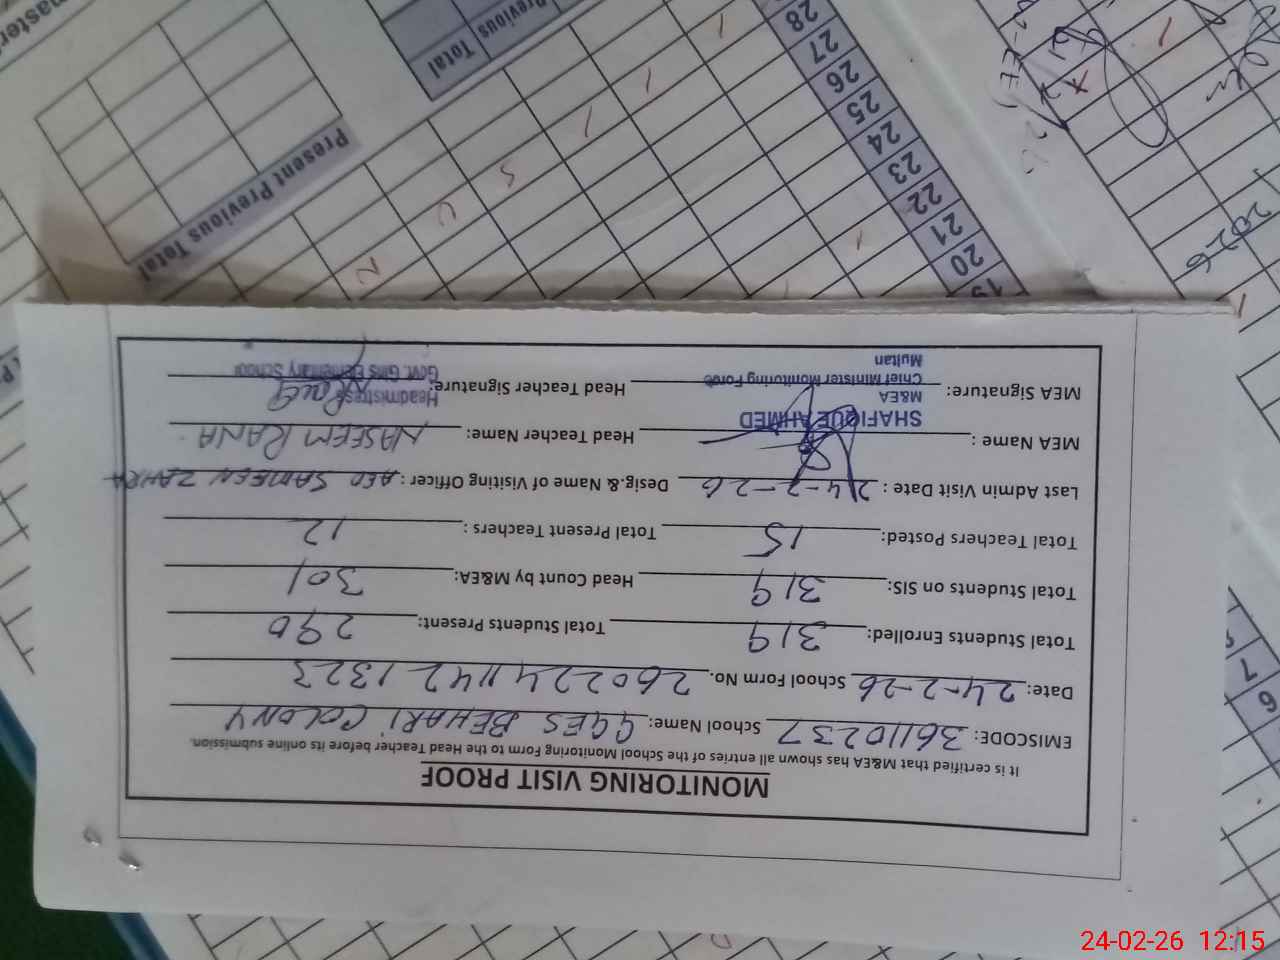 MONITORING VISIT PROOF
It is certified that M&EA has shown all entries of the School Monitoring Form to the Head Teacher before its online submission.
EMISCODE: 36110237 School Name: GGES BEHARI COLONY
Date: 24-2-26 School Form No. 2602241142 1323
Total Students Enrolled: 319 Total Students Present: 290
Total Students on SIS: 319 Head Count by M&EA: 301
Total Teachers Posted: 15 Total Present Teachers : 12
Last Admin Visit Date : 24-2-26 Desig.& Name of Visiting Officer : AEO SAMEEN ZAHRA
MEA Name : Head Teacher Name: NASEEM RANA
SHAFIQUE AHMED
M&EA
Chief Minister Monitoring Force
Multan
MEA Signature: Head Teacher Signature:
Headmistress
Govt. Girls Elementary School
Present Previous Total
Previous Total
19
20
21
22
23
24
25
26
27
28
2026
6
7
24-02-26 12:15